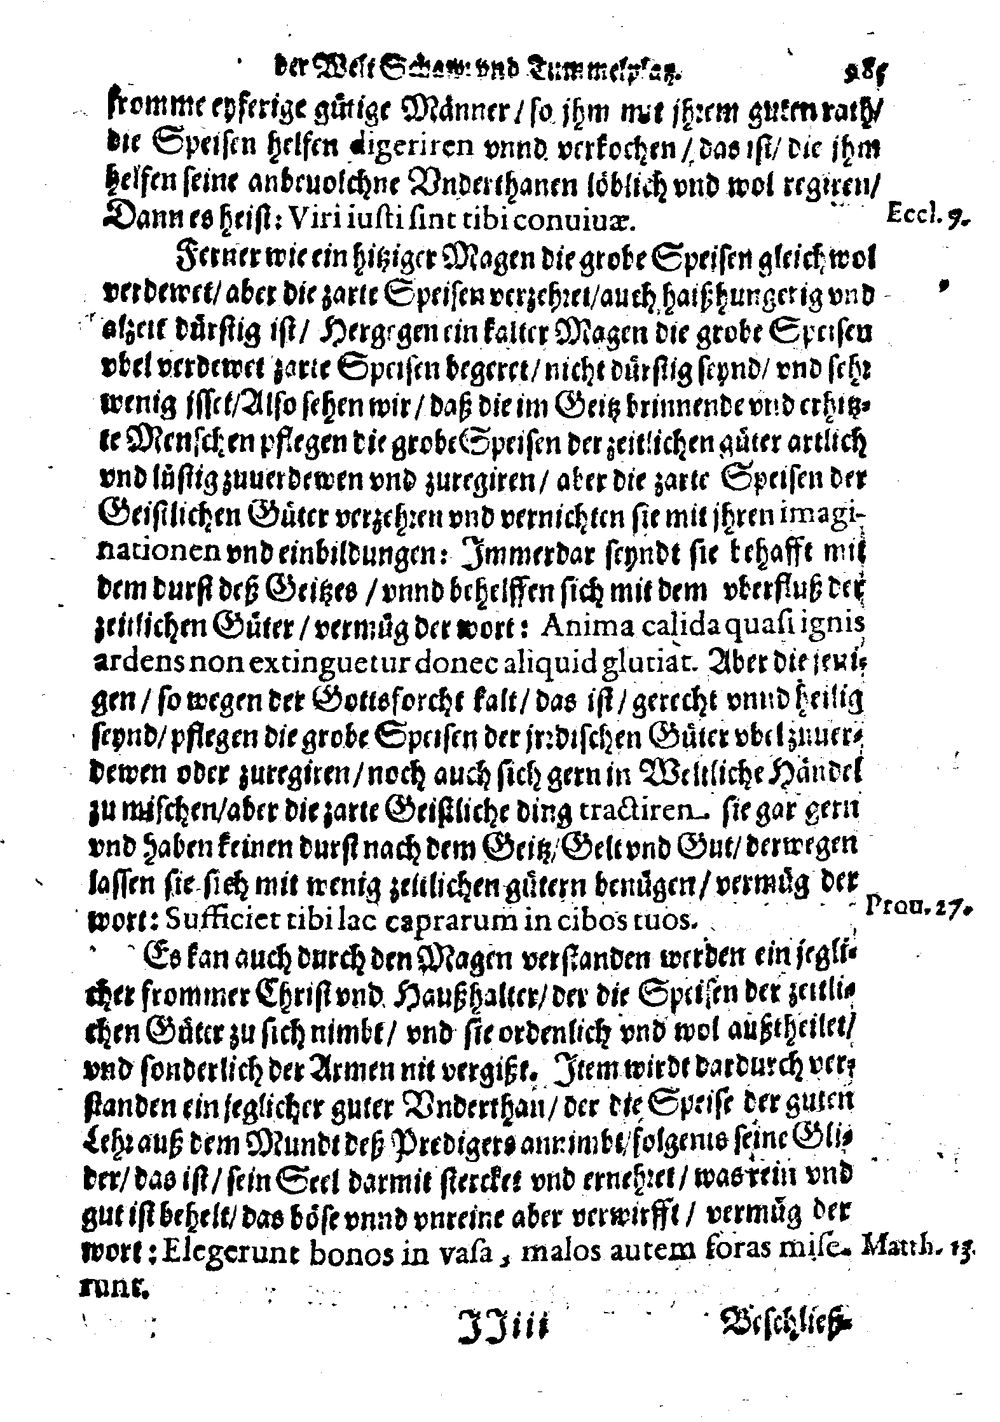 der Welt Schaw: vnd Tummelplatz. 985
fromme eyferige gütige Männer / so jhm mit jhrem guten rath/
die Speisen helfen digeriren vnnd verkochen / das ist/ die jhm
helfen seine anbeuolchne Vnderthanen löblich vnd wol regiren/
Dann es heist: Viri iusti sint tibi conuiuæ.
Eccl. 9.
Ferner wie ein hitziger Magen die grobe Speisen gleich wol
verdewet/ aber die zarte Speisen verzehret/auch haißhungerig vnd
alzeit dürstig ist/ Hergegen ein kalter Magen die grobe Speisen
vbel verdewet zarte Speisen begeret/ nicht dürstig seynd/ vnd sehr
wenig isset/Also sehen wir / daß die im Geitz brinnende vnd erhitz-
te Menschen pflegen die grobe Speisen der zeitlichen güter artlich
vnd lüstig zuuerdewen vnd zuregiren/ aber die zarte Speisen der
Geistlichen Güter verzehren vnd vernichten sie mit jhren imagi-
nationen vnd einbildungen: Immerdar seyndt sie behafft mit
dem durst deß Geitzes / vnnd behelffen sich mit dem vberfluß der
zeitlichen Güter / vermüg der wort: Anima calida quasi ignis
ardens non extinguetur donec aliquid glutiat. Aber die jeni-
gen / so wegen der Gottsforcht kalt/ das ist/ gerecht vnnd heilig
seynd/ pflegen die grobe Speisen der jrrdischen Güter vbel zuuer-
dewen oder zuregiren/ noch auch sich gern in Weltliche Händel
zu mischen/aber die zarte Geistliche ding tractiren sie gar gern
vnd haben keinen durst nach dem Geitz/ Gelt vnd Gut/ derwegen
lassen sie sich mit wenig zeitlichen gütern benügen/ vermüg der
wort: Sufficiet tibi lac caprarum in cibos tuos.
Prou. 27.
Es kan auch durch den Magen verstanden werden ein jegli-
cher frommer Christ vnd Haußhalter/ der die Speisen der zeitli-
chen Güter zu sich nimbt/ vnd sie ordenlich vnd wol außtheilet/
vnd sonderlich der Armen nit vergißt. Item wirdt dardurch ver-
standen ein jeglicher guter Vnderthan/ der die Speise der guten
Lehr auß dem Mundt deß Predigers annimbt/ folgents seine Gli-
der/ das ist/ sein Seel darmit stercket vnd ernehret/ was rein vnd
gut ist behelt/ das böse vnnd vnreine aber verwirfft / vermüg der
wort: Elegerunt bonos in vasa, malos autem foras mise-
Matth. 13.
runt.
JJiii Beschließ-